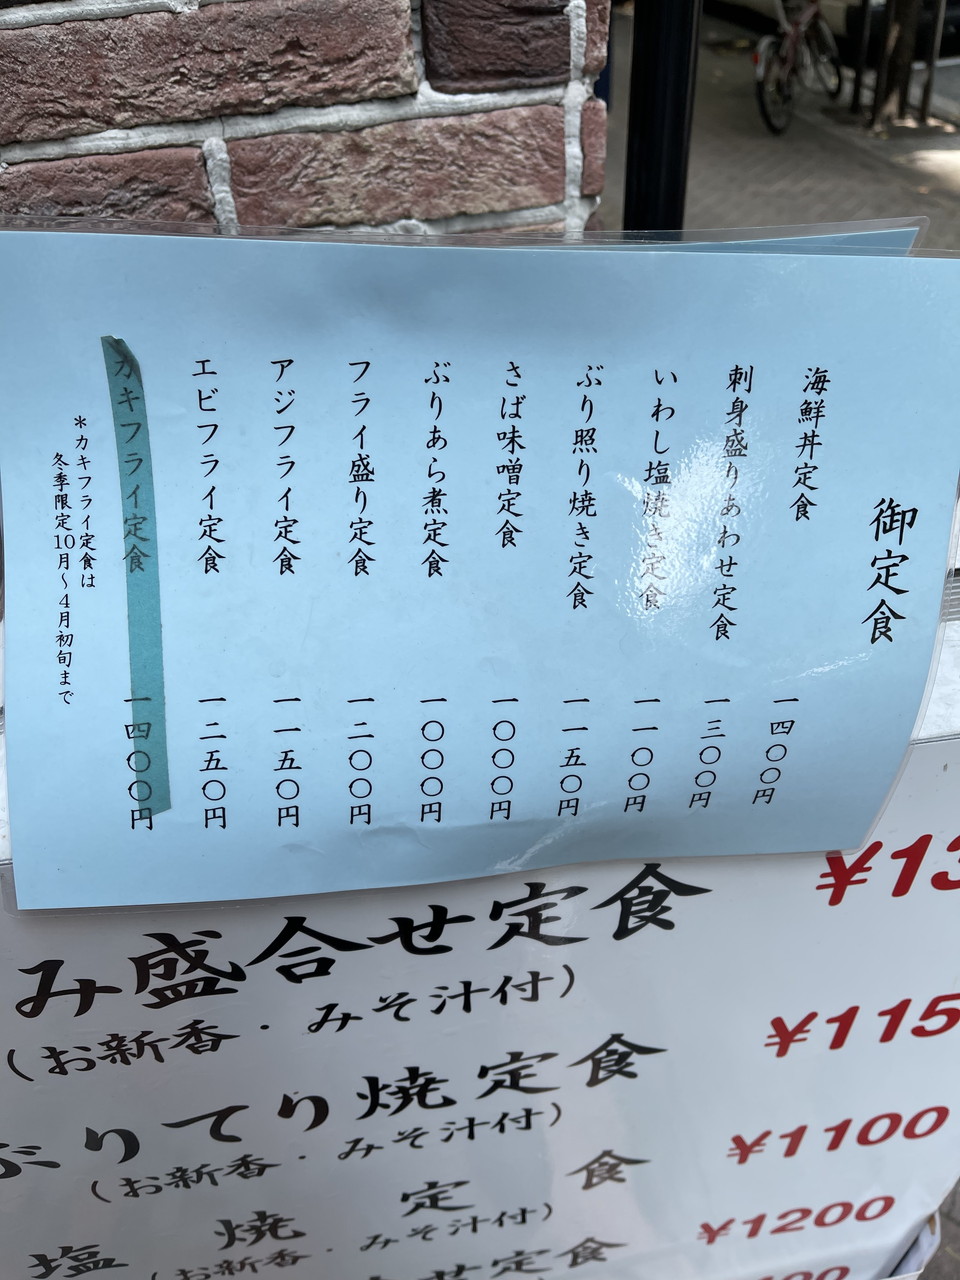 御定食
海鮮丼定食 一四〇〇円
刺身盛りあわせ定食 一三〇〇円
いわし塩焼き定食 一一〇〇円
ぶり照り焼き定食 一一五〇円
さば味噌定食 一〇〇〇円
ぶりあら煮定食 一〇〇〇円
フライ盛り定食 一二〇〇円
アジフライ定食 一一五〇円
エビフライ定食 一二五〇円
カキフライ定食 一四〇〇円
*カキフライ定食は
冬季限定10月～4月初旬まで
み盛合せ定食 ¥13
(お新香・みそ汁付)
ぶりてり焼定食 ¥115
(お新香・みそ汁付)
塩焼定食 ¥1100
(お新香・みそ汁付)
盛合せ定食 ¥1200